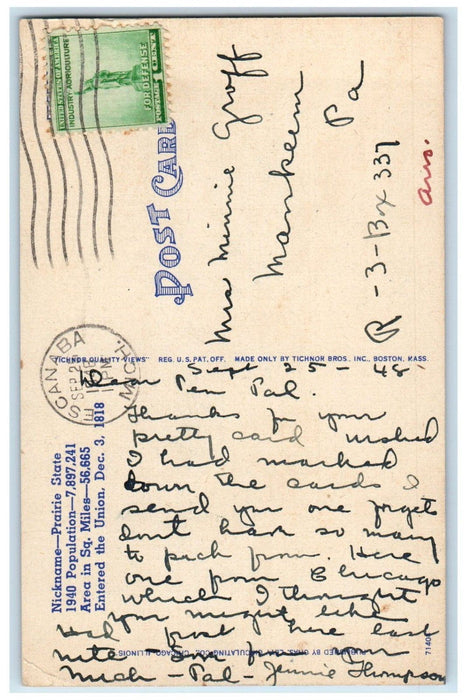 UNITED STATES OF AMERICA
INDUSTRY AGRICULTURE
FOR DEFENSE
POSTAGE 1 CENT
POST CARD
Mrs Minnie Groff
Manheim
Pa
R-3-Box 337
ans.
ESCANABA, MICH.
SEP 2
PM
"TICHNOR QUALITY VIEWS" REG. U.S. PAT. OFF. MADE ONLY BY TICHNOR BROS. INC., BOSTON, MASS.
Nickname—Prairie State
1940 Population—7,897,241
Area in Sq. Miles—56,665
Entered the Union, Dec. 3, 1818
Sept 25 - 48
Dear Pen Pal.
Thanks for your
pretty card wished
I had marked
down the cards I
send you one forgets
dont have so many
to pick from. Here
one from Chicago
which I thought
you might like
Had frost here last
nite
much - Pal - Jennie Thompson
CIRCULATING CO., CHICAGO, ILLINOIS
7140